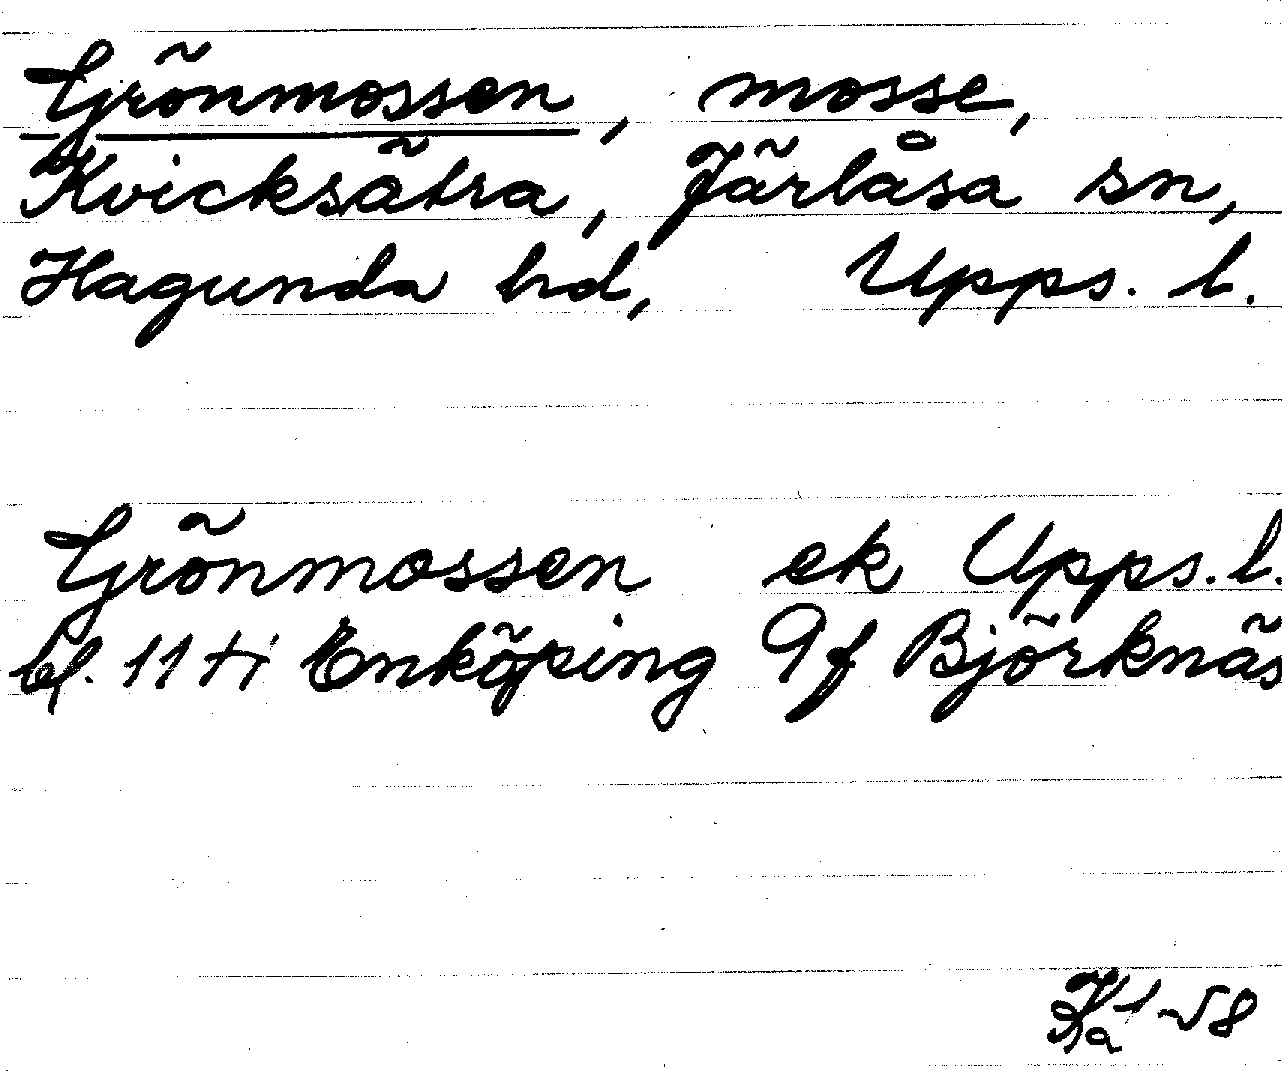 Grönmossen, mosse,
Kvicksätra, Järlåsa sn,
Hagunda hd, Upps. l.
Grönmossen ek Upps. l.
bl. 11 ti Enköping 9f Björknäs